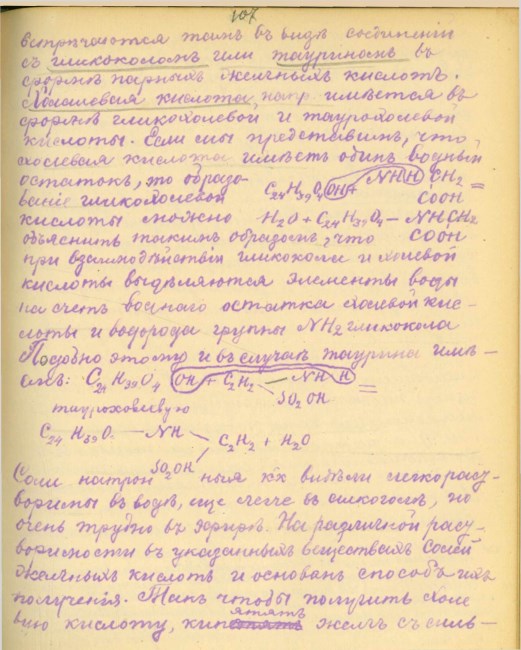 107
встрѣчаются тамъ въ видѣ соединенiй
съ гликоколомъ или тауриномъ въ
формѣ парныхъ желчныхъ кислотъ.
Холалевая кислота, напр имѣется въ
формѣ гликохолевой и таурохолевой
кислоты. Если мы представимъ, что
холевая кислота имѣетъ одинъ водный
остатокъ, то образо-
ванiе гликохолевой
C24H39O4 OH + NHH CH2 =
COOH
кислоты можно
H2O + C24H39O4 — NHCH2
COOH
объяснить такимъ образомъ, что
при взаимодѣйствiи гликокола и холевой
кислоты выдѣляются элементы воды
на счетъ воднаго остатка холевой кис-
лоты и водорода группы NH2 гликокола
Подобно этому и въ случаѣ таурина имѣ-
емъ: C24 H39O4 OH + C2H2 — NH H =
SO2OH
таурохолевую
C24 H39O. — NH
C2H2 + H2O
SO2OH
Соли натрон ныя ихъ видѣли легкорас-
творимы въ водѣ, еще легче въ алкоголѣ, но
очень трудно въ эфирѣ. На различной рас-
творимости въ указанныхъ веществахъ солей
желчныхъ кислотъ и основанъ способъ ихъ
полученiя. Такъ чтобы получить холе
вую кислоту, кип
ятятъ
желчь съ силь-